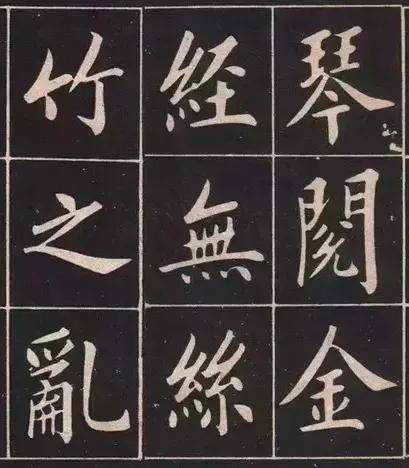 琴閱金
經無絲
竹之亂